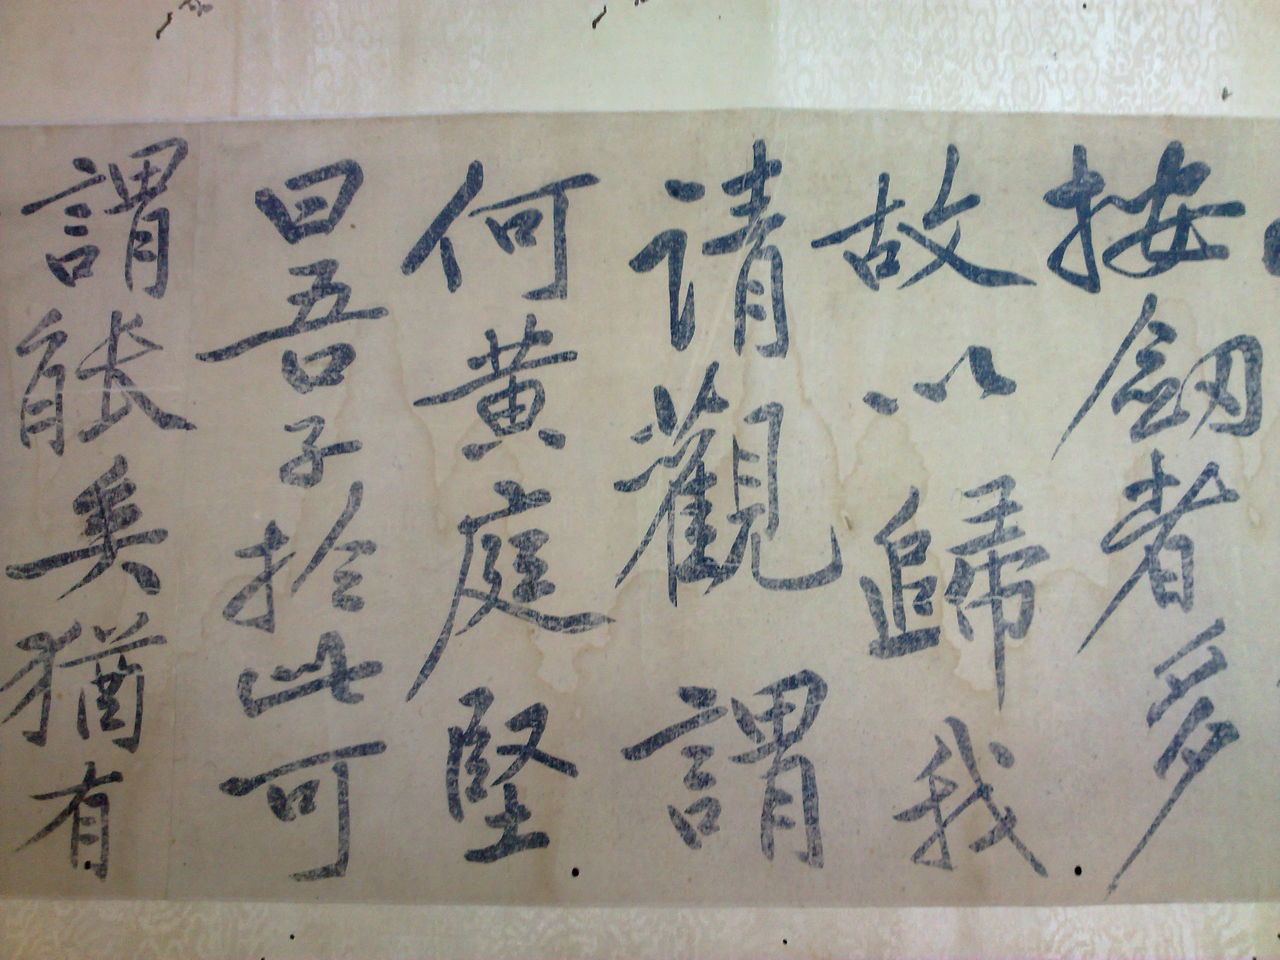 按劒者多
故以歸我
请觀謂
何黄庭堅
曰吾子於此可
謂能矣猶有